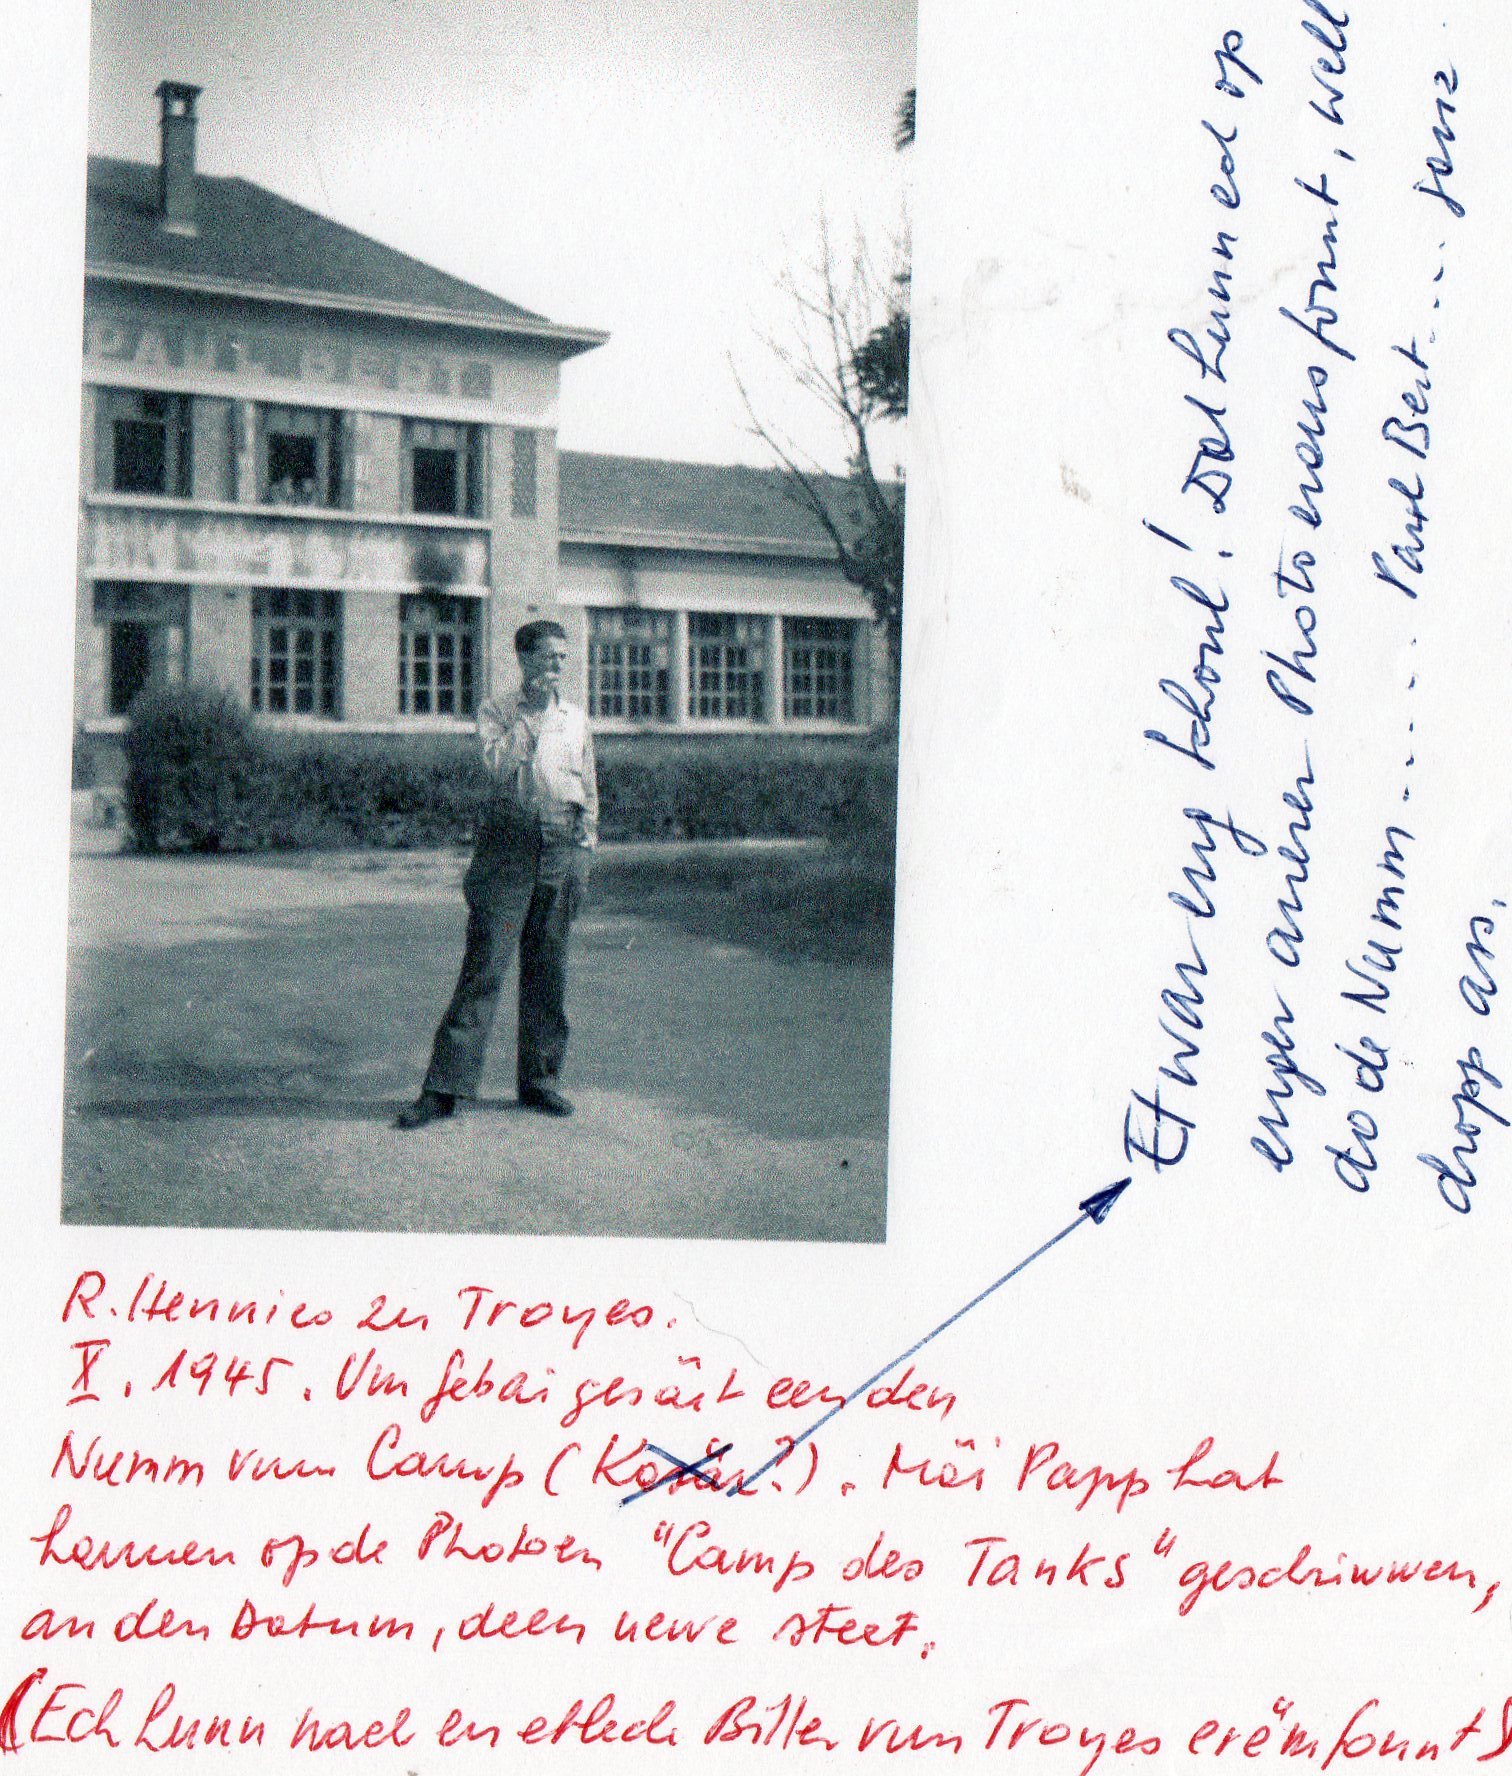 R. Hennico zu Troyes.
X. 1945. Um Gebai gesäit een den
Numm vum Camp (Kosär?). Mäi Papp hat
hannen op de Photoen "Camp des Tanks" geschriwwen,
an den Datum, deen uewe steet.
(Ech hunn nach en etlech Biller vun Troyes erëmfonnt)
Et war eng Schoul! Dat hunn ech op
enger anerer Photo erausfonnt, well
do de Numm ..... Paul Bert .... ganz
dropp ass.